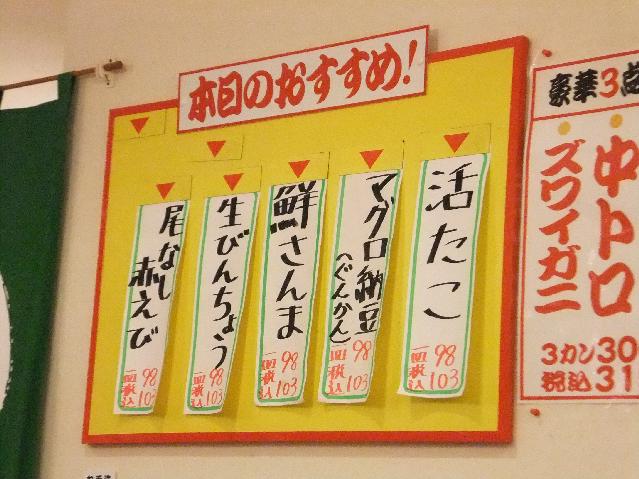 本日のおすすめ!
活たこ
一皿 98
税込 103
マグロ納豆
(ぐんかん)
一皿 98
税込 103
鮮さんま
一皿 98
税込 103
生びんちょう
一皿 98
税込 103
尾なし
赤えび
一皿 98
税込 103
豪華3点
中トロ
ズワイガニ
3カン 30
税込 31